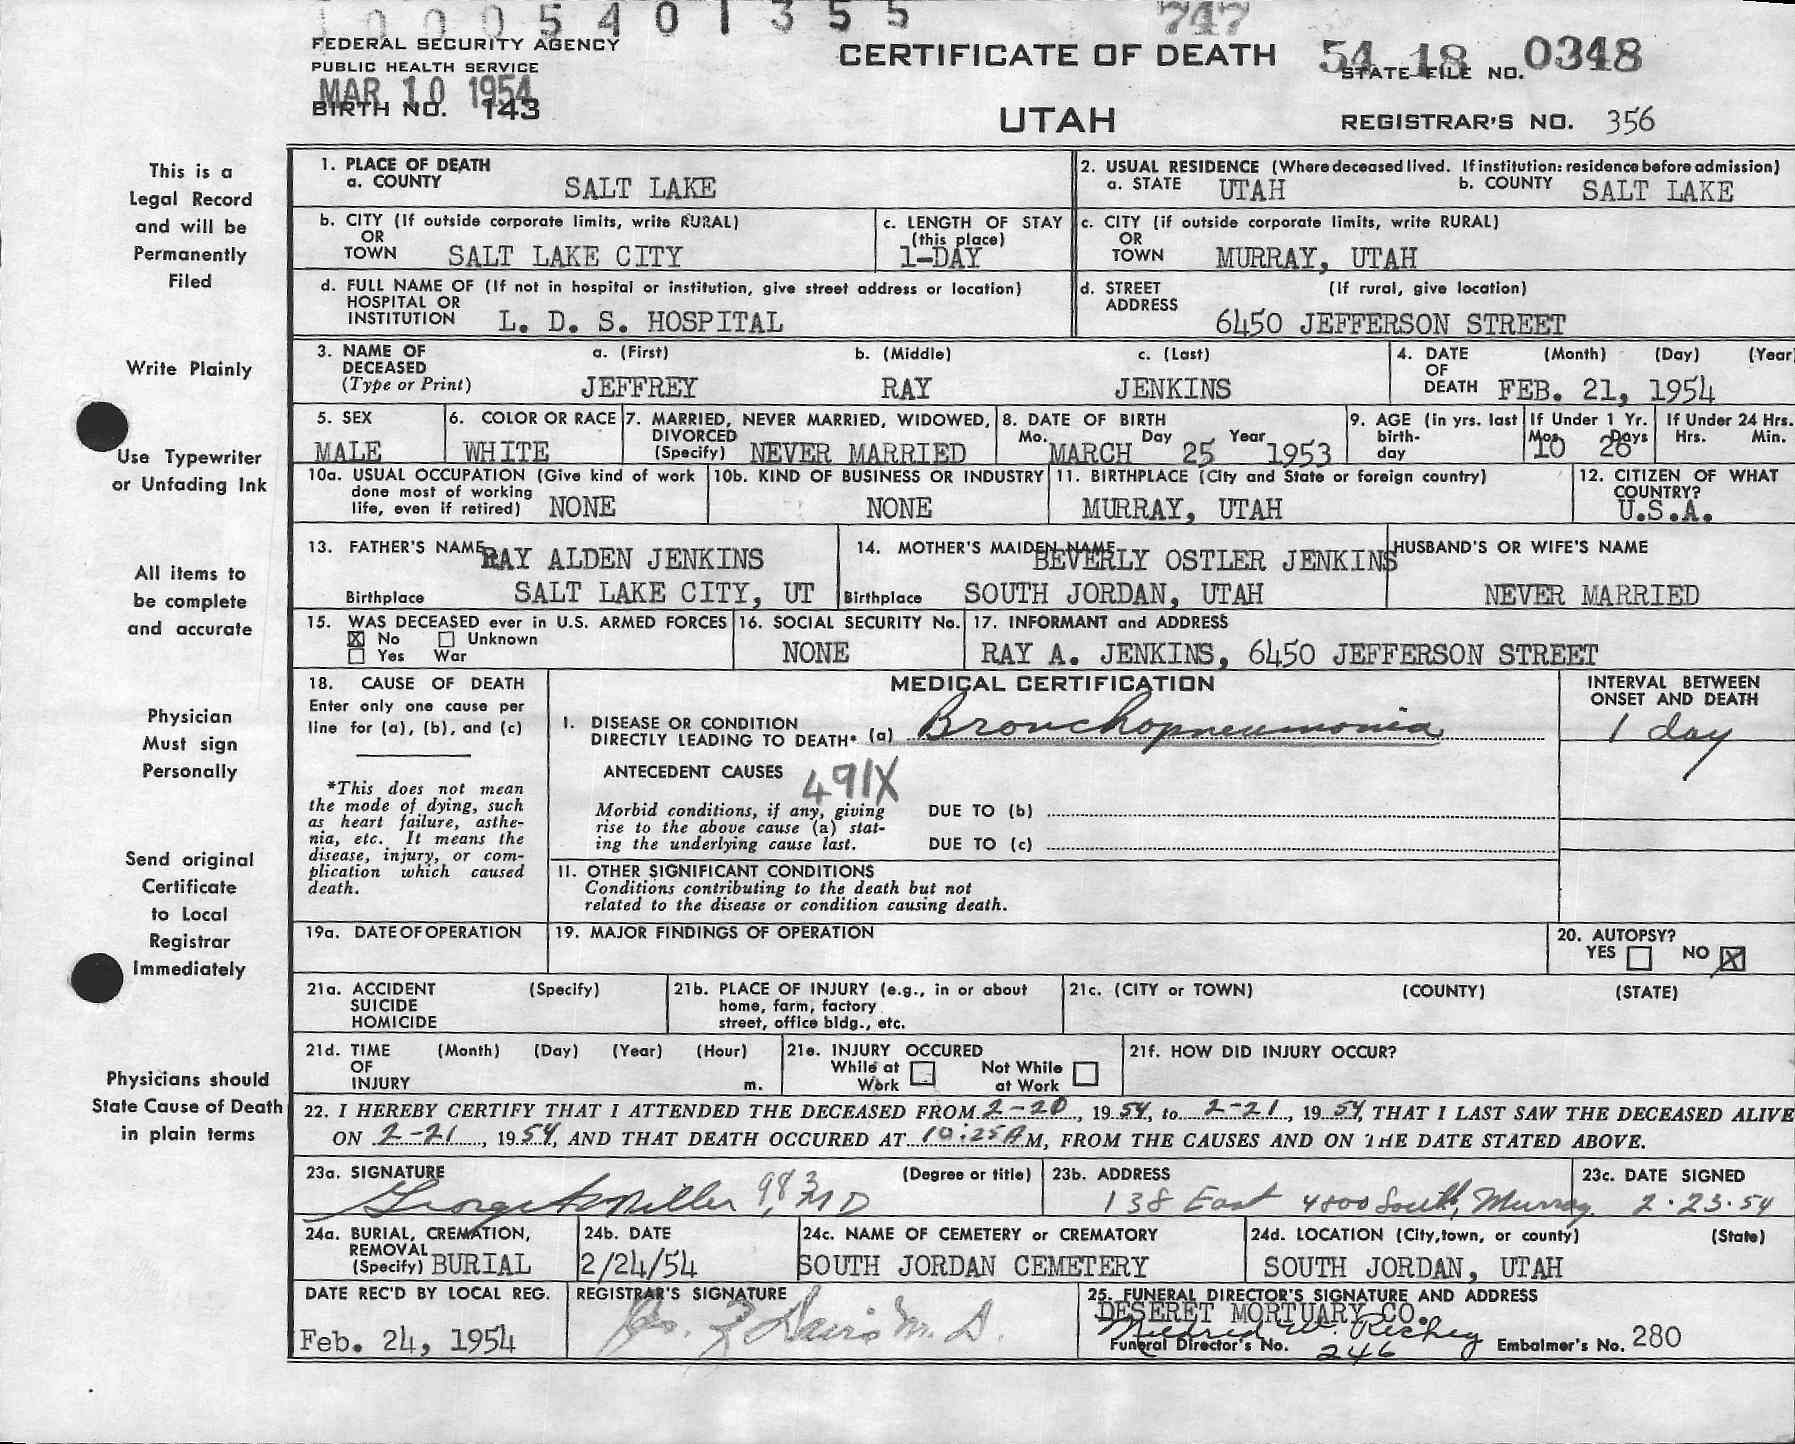 10005401355 747
FEDERAL SECURITY AGENCY
PUBLIC HEALTH SERVICE
MAR 10 1954
BIRTH NO. 143
CERTIFICATE OF DEATH
UTAH
54 18 0348
STATE FILE NO.
REGISTRAR'S NO. 356
This is a
Legal Record
and will be
Permanently
Filed
Write Plainly
Use Typewriter
or Unfading Ink
All items to
be complete
and accurate
Physician
Must sign
Personally
Send original
Certificate
to Local
Registrar
Immediately
Physicians should
State Cause of Death
in plain terms
1. PLACE OF DEATH
a. COUNTY SALT LAKE
2. USUAL RESIDENCE (Where deceased lived. If institution: residence before admission)
a. STATE UTAH b. COUNTY SALT LAKE
b. CITY (If outside corporate limits, write RURAL)
OR
TOWN SALT LAKE CITY
c. LENGTH OF STAY
(this place)
1-DAY
c. CITY (if outside corporate limits, write RURAL)
OR
TOWN MURRAY, UTAH
d. FULL NAME OF (If not in hospital or institution, give street address or location)
HOSPITAL OR
INSTITUTION L. D. S. HOSPITAL
d. STREET (If rural, give location)
ADDRESS
6450 JEFFERSON STREET
3. NAME OF a. (First) b. (Middle) c. (Last)
DECEASED
(Type or Print) JEFFREY RAY JENKINS
4. DATE (Month) (Day) (Year
OF
DEATH FEB. 21, 1954
5. SEX
MALE
6. COLOR OR RACE
WHITE
7. MARRIED, NEVER MARRIED, WIDOWED,
DIVORCED
(Specify) NEVER MARRIED
8. DATE OF BIRTH
Mo. Day Year
MARCH 25 1953
9. AGE (in yrs. last
birth-
day
If Under 1 Yr.
Mos Days
10 26
If Under 24 Hrs.
Hrs. Min.
10a. USUAL OCCUPATION (Give kind of work
done most of working
life, even if retired) NONE
10b. KIND OF BUSINESS OR INDUSTRY
NONE
11. BIRTHPLACE (City and State or foreign country)
MURRAY, UTAH
12. CITIZEN OF WHAT
COUNTRY?
U.S.A.
13. FATHER'S NAME RAY ALDEN JENKINS
Birthplace SALT LAKE CITY, UT
14. MOTHER'S MAIDEN NAME BEVERLY OSTLER JENKINS
Birthplace SOUTH JORDAN, UTAH
HUSBAND'S OR WIFE'S NAME
NEVER MARRIED
15. WAS DECEASED ever in U.S. ARMED FORCES
X No Unknown
Yes War
16. SOCIAL SECURITY No.
NONE
17. INFORMANT and ADDRESS
RAY A. JENKINS, 6450 JEFFERSON STREET
18. CAUSE OF DEATH
Enter only one cause per
line for (a), (b), and (c)
*This does not mean
the mode of dying, such
as heart failure, asthe-
nia, etc. It means the
disease, injury, or com-
plication which caused
death.
MEDICAL CERTIFICATION
INTERVAL BETWEEN
ONSET AND DEATH
I. DISEASE OR CONDITION
DIRECTLY LEADING TO DEATH* (a) Bronchopneumonia 1 day
ANTECEDENT CAUSES 491X
Morbid conditions, if any, giving
rise to the above cause (a) stat-
ing the underlying cause last.
DUE TO (b)
DUE TO (c)
II. OTHER SIGNIFICANT CONDITIONS
Conditions contributing to the death but not
related to the disease or condition causing death.
19a. DATE OF OPERATION
19. MAJOR FINDINGS OF OPERATION
20. AUTOPSY?
YES NO X
21a. ACCIDENT (Specify)
SUICIDE
HOMICIDE
21b. PLACE OF INJURY (e.g., in or about
home, farm, factory
street, office bldg., etc.
21c. (CITY or TOWN) (COUNTY) (STATE)
21d. TIME (Month) (Day) (Year) (Hour)
OF
INJURY m.
21e. INJURY OCCURED
While at Not While
Work at Work
21f. HOW DID INJURY OCCUR?
22. I HEREBY CERTIFY THAT I ATTENDED THE DECEASED FROM 2-20, 1954, to 2-21, 1954, THAT I LAST SAW THE DECEASED ALIVE
ON 2-21, 1954, AND THAT DEATH OCCURED AT 10:25 A M, FROM THE CAUSES AND ON THE DATE STATED ABOVE.
23a. SIGNATURE (Degree or title)
George A Miller 983 MD
23b. ADDRESS
138 East 4800 South, Murray
23c. DATE SIGNED
2-23-54
24a. BURIAL, CREMATION,
REMOVAL
(Specify) BURIAL
24b. DATE
2/24/54
24c. NAME OF CEMETERY or CREMATORY
SOUTH JORDAN CEMETERY
24d. LOCATION (City, town, or county) (State)
SOUTH JORDAN, UTAH
DATE REC'D BY LOCAL REG.
Feb. 24, 1954
REGISTRAR'S SIGNATURE
Davis M. D.
25. FUNERAL DIRECTOR'S SIGNATURE AND ADDRESS
DESERET MORTUARY CO.
Mildred W. Richey
Funeral Director's No. 246 Embalmer's No. 280